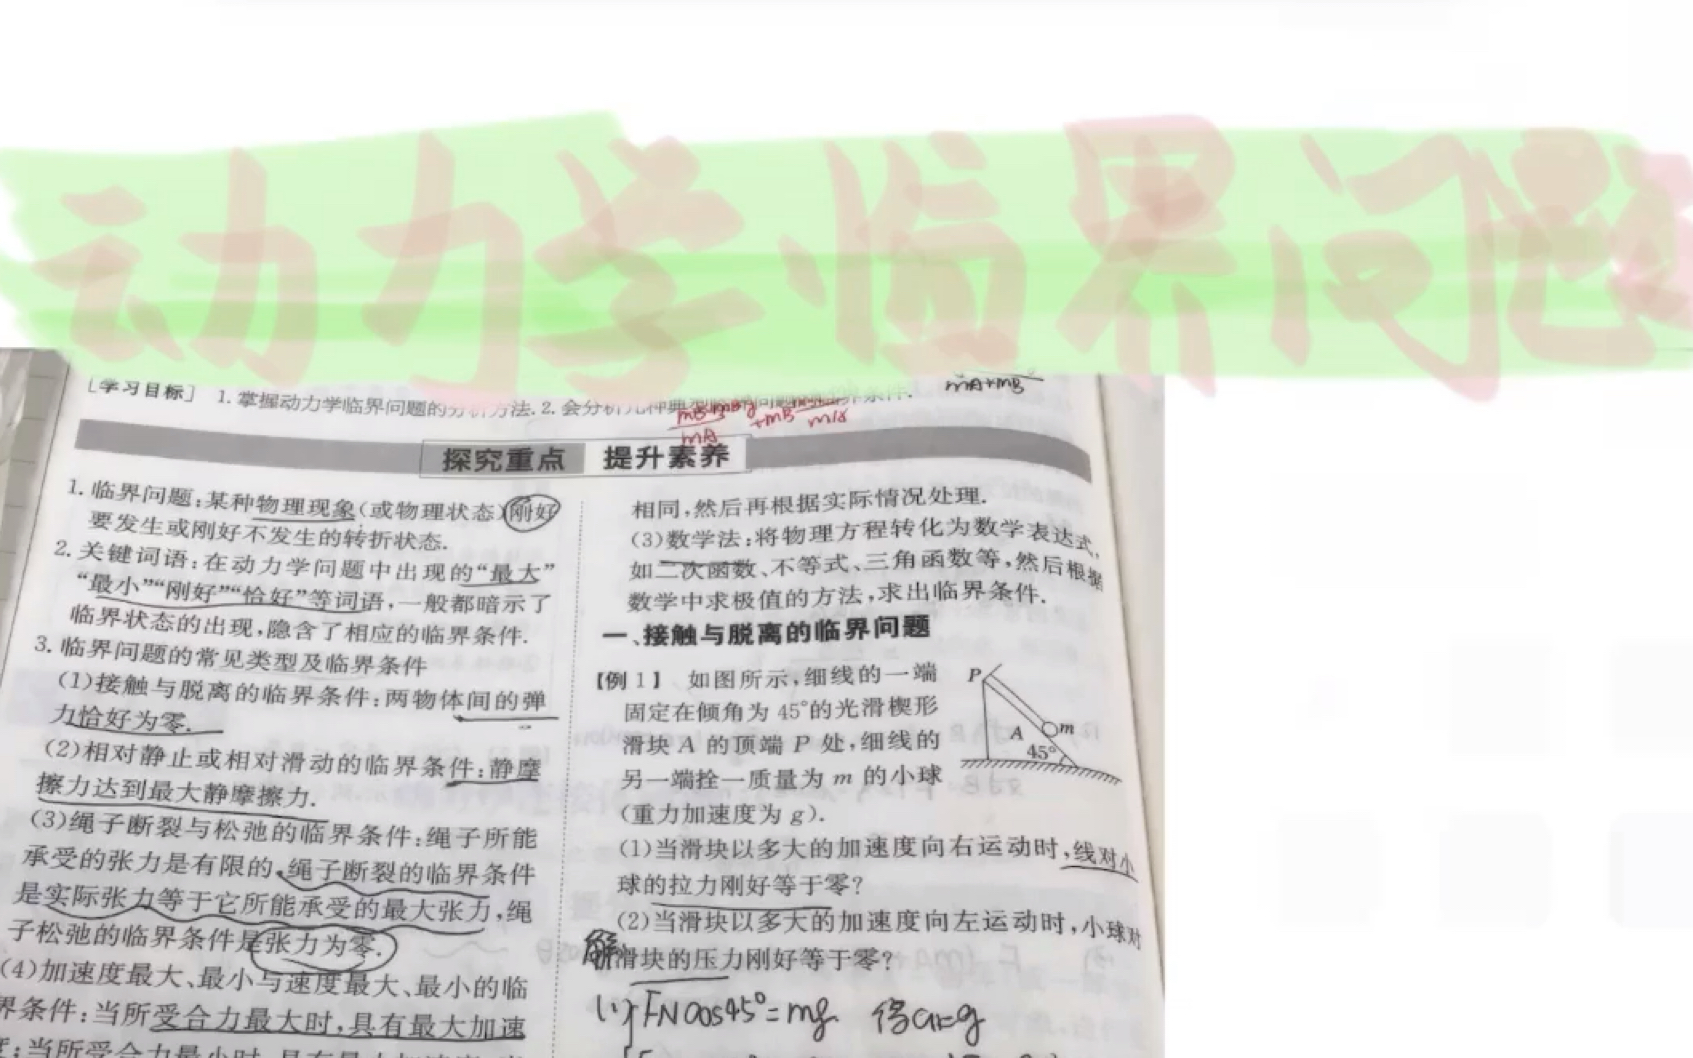 动力学临界问题
mA+mB
[学习目标] 1.掌握动力学临界问题的分析方法.2.会分析几种典型临界问题的临界条件.
mA
+mB
探究重点 提升素养
1.临界问题:某种物理现象(或物理状态)刚好
要发生或刚好不发生的转折状态.
2.关键词语:在动力学问题中出现的“最大”
“最小”“刚好”“恰好”等词语,一般都暗示了
临界状态的出现,隐含了相应的临界条件.
3.临界问题的常见类型及临界条件
(1)接触与脱离的临界条件:两物体间的弹
力恰好为零.
(2)相对静止或相对滑动的临界条件:静摩
擦力达到最大静摩擦力.
(3)绳子断裂与松弛的临界条件:绳子所能
承受的张力是有限的,绳子断裂的临界条件
是实际张力等于它所能承受的最大张力,绳
子松弛的临界条件是张力为零.
(4)加速度最大、最小与速度最大、最小的临
界条件:当所受合力最大时,具有最大加速
相同,然后再根据实际情况处理.
(3)数学法:将物理方程转化为数学表达式,
如二次函数、不等式、三角函数等,然后根据
数学中求极值的方法,求出临界条件.
一、接触与脱离的临界问题
【例1】 如图所示,细线的一端
固定在倾角为45°的光滑楔形
滑块A的顶端P处,细线的
另一端拴一质量为m的小球
(重力加速度为g).
P
m
A
45°
(1)当滑块以多大的加速度向右运动时,线对小
球的拉力刚好等于零?
(2)当滑块以多大的加速度向左运动时,小球对
滑块的压力刚好等于零?
解
(1) FNcos45°=mg 得a1=g